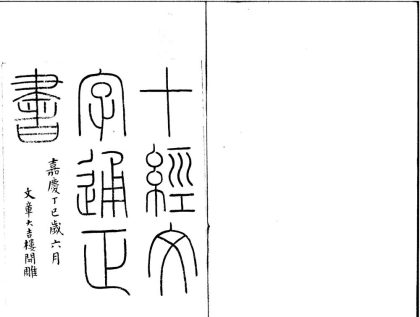 十經文
字通正
書
嘉慶丁巳歲六月
文章大吉樓開雕